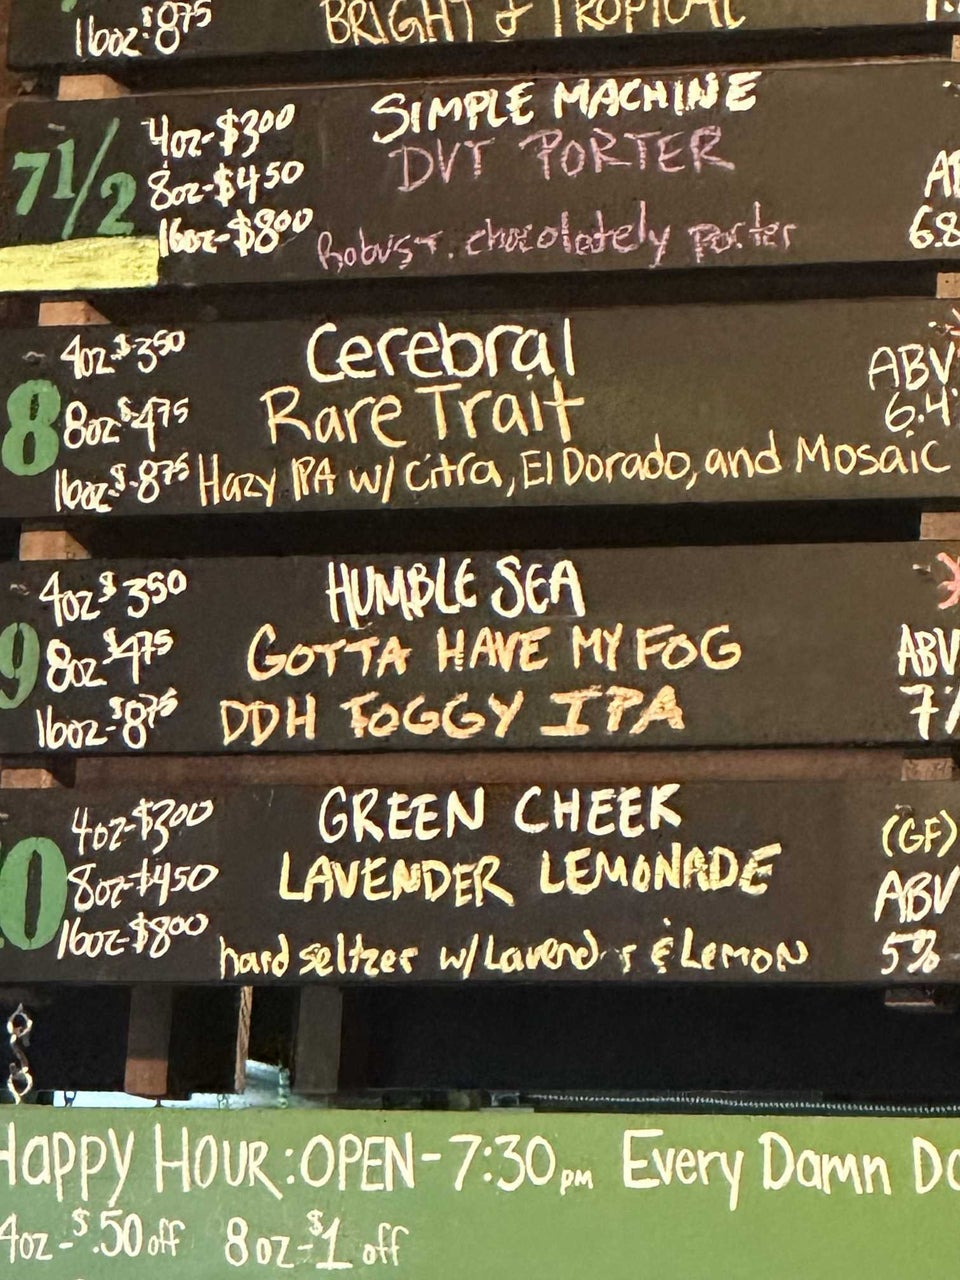 16oz-$8.75 BRIGHT & TROPICAL
7 1/2
4oz-$3.00 SIMPLE MACHINE
8oz-$4.50 DVT PORTER
16oz-$8.00 Robust, chocolately porter
AB
6.8
8
4oz-$3.50 Cerebral
8oz-$4.75 Rare Trait
16oz-$8.75 Hazy IPA w/ Citra, El Dorado, and Mosaic
ABV
6.4
9
4oz-$3.50 HUMBLE SEA
8oz-$4.75 GOTTA HAVE MY FOG
16oz-$8.75 DDH FOGGY IPA
ABV
7%
0
4oz-$3.00 GREEN CHEEK
8oz-$4.50 LAVENDER LEMONADE
16oz-$8.00 hard seltzer w/ Lavender & Lemon
(GF)
ABV
5%
Happy Hour: OPEN-7:30pm Every Damn Da
4oz-$.50 off 8oz-$1 off